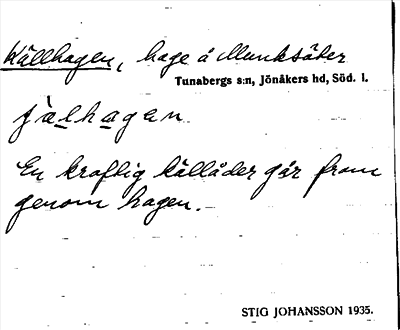 Källhagen, hage å Munksäter
Tunabergs s:n, Jönåkers hd, Söd. l.
çàlhagen
En kraftig källåder går fram
genom hagen.
STIG JOHANSSON 1935.